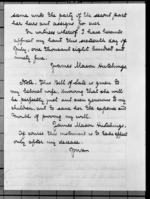 same unto the party of the second part
her heirs and assigns for ever.
In witness whereof I have hereunto
affixed my hand this sixteenth day of
July, one thousand eight hundred and
ninety five.
James Mason Hutchings.
Note. This Bill of Sale is given to
my beloved wife, knowing that she will
be perfectly just and even generous to my
children, and to save her the expense and
trouble of proving my will.
James Mason Hutchings.
Of course this instrument is to take effect
only after my decease.